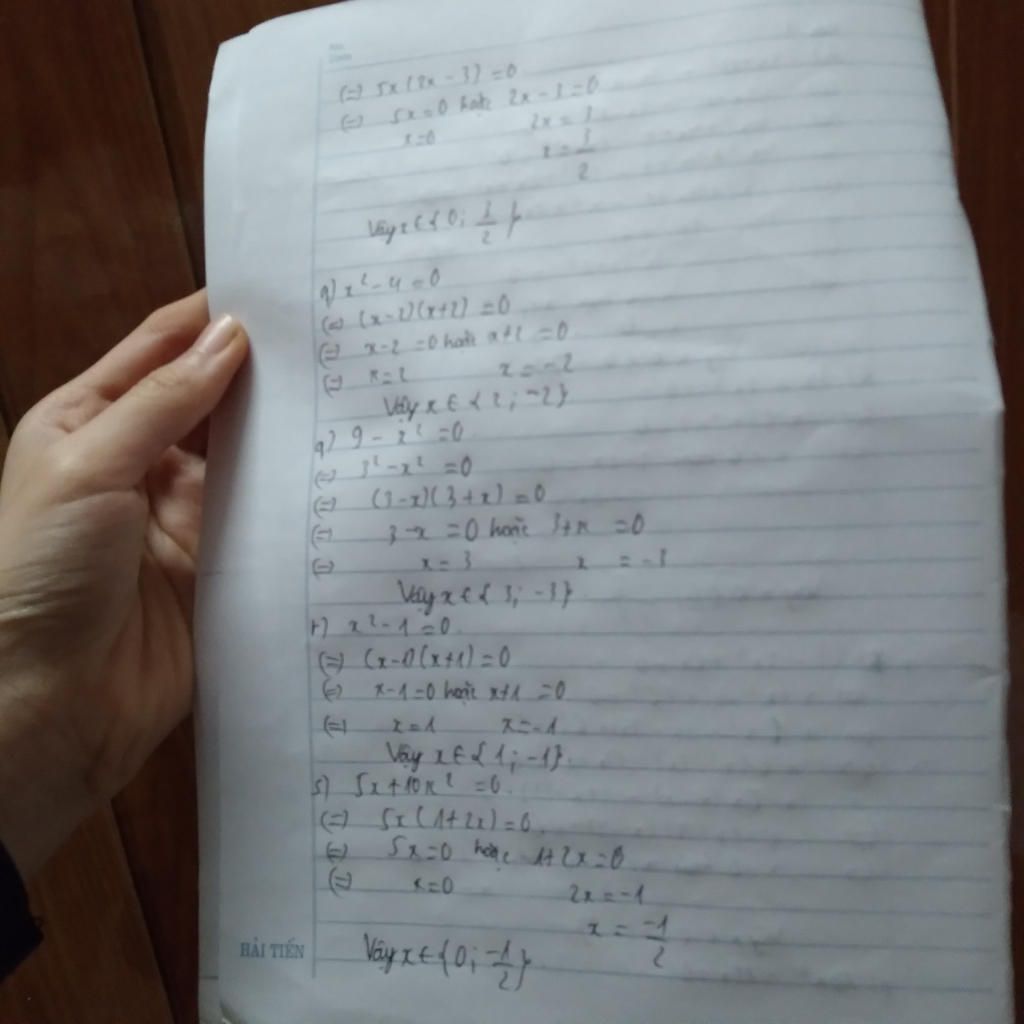 (=) 5x(2x - 3) = 0
(=) 5x = 0 hoặc 2x - 3 = 0
x = 0 2x = 3
x = 3/2
Vậy x ∈ { 0 ; 3/2 }
q) x² - 4 = 0
(=) (x-2)(x+2) = 0
(=) x-2 = 0 hoặc x+2 = 0
(=) x = 2 x = -2
Vậy x ∈ { 2 ; -2 }
q) 9 - x² = 0
(=) 3² - x² = 0
(=) (3-x)(3+x) = 0
(=) 3-x = 0 hoặc 3+x = 0
(=) x = 3 x = -3
Vậy x ∈ { 3; -3 }
r) x² - 1 = 0
(=) (x-1)(x+1) = 0
(=) x-1 = 0 hoặc x+1 = 0
(=) x = 1 x = -1
Vậy x ∈ { 1 ; -1 }
s) 5x + 10x² = 0
(=) 5x(1+2x) = 0
(=) 5x = 0 hoặc 1+2x = 0
(=) x = 0 2x = -1
x = -1/2
HẢI TIẾN
Vậy x ∈ { 0 ; -1/2 }